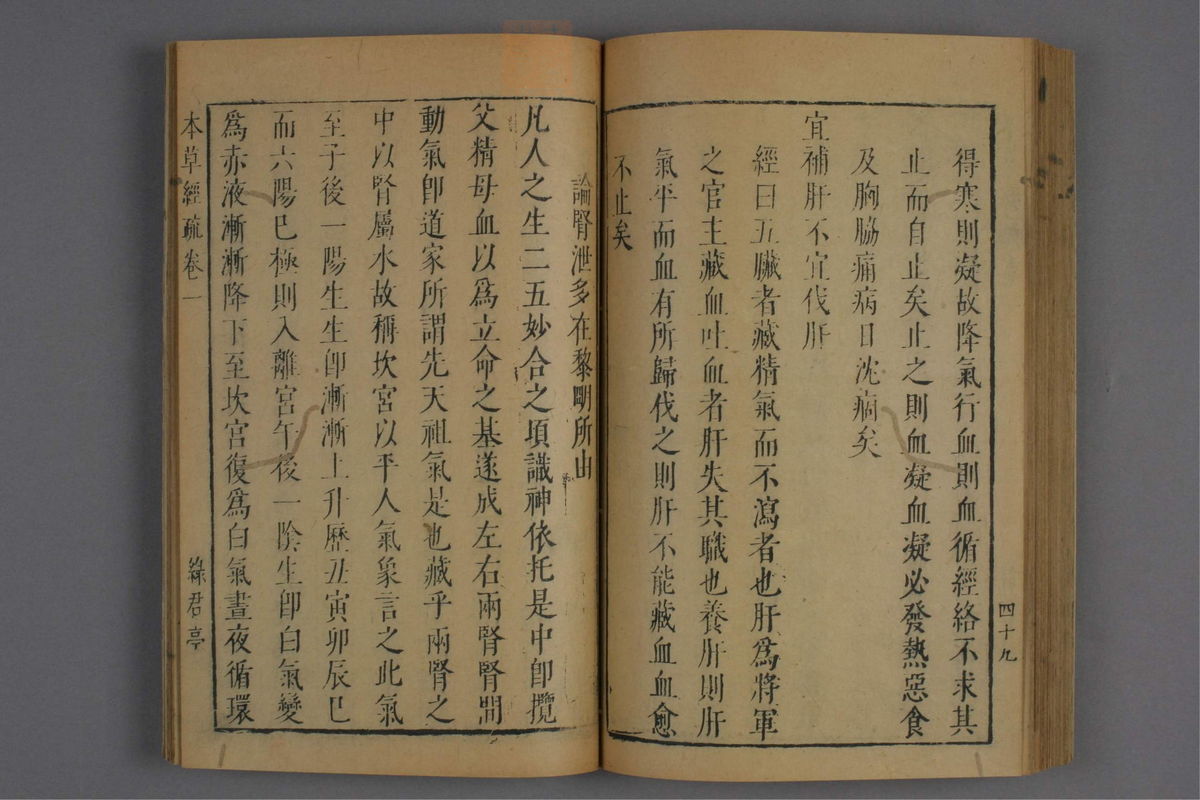 得寒則凝故降氣行血則血循經絡不求其
止而自止矣止之則血凝血凝必發熱惡食
及胸脇痛病日沈痼矣
宜補肝不宜伐肝
經曰五臟者藏精氣而不瀉者也肝爲將軍
之官主藏血吐血者肝失其職也養肝則肝
氣平而血有所歸伐之則肝不能藏血血愈
不止矣
四十九
論腎泄多在黎明所由
凡人之生二五妙合之項識神依托是中卽攬
父精母血以爲立命之基遂成左右兩腎腎間
動氣卽道家所謂先天祖氣是也藏乎兩腎之
中以腎屬水故稱坎宮以平人氣象言之此氣
至子後一陽生生卽漸漸上升歷丑寅卯辰巳
而六陽巳極則入離宮午後一陰生卽白氣變
爲赤液漸漸降下至坎宮復爲白氣晝夜循環
本草經疏 卷一
綠君亭